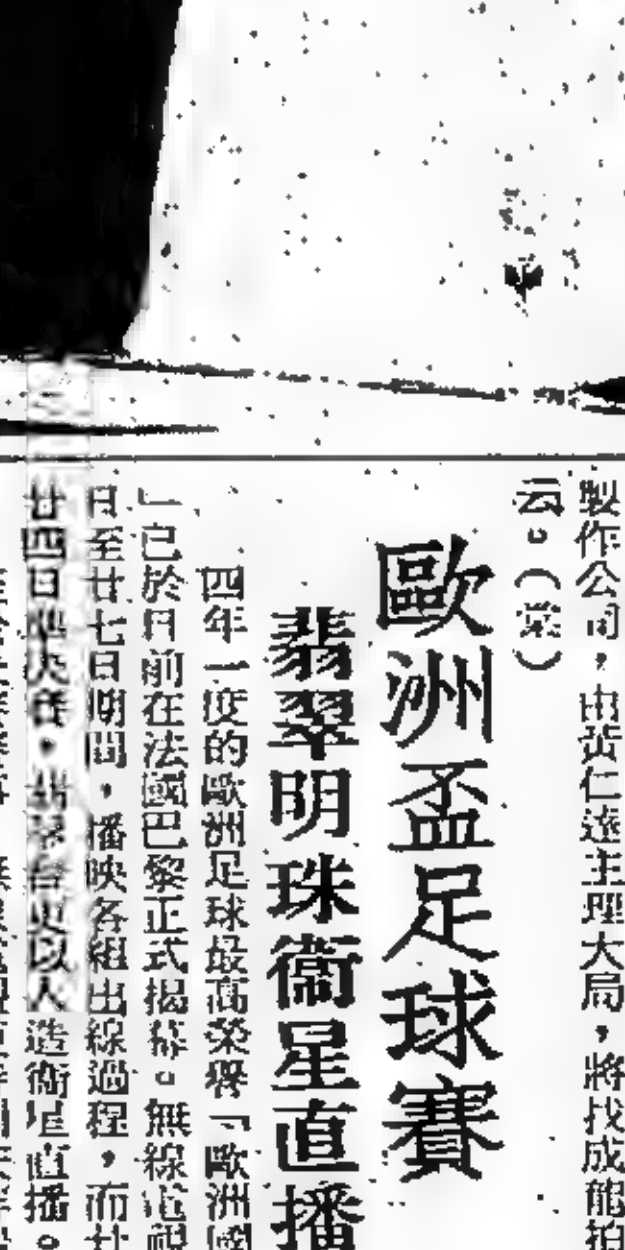 製作公司，由黃仁逵主理大局，將找成龍拍
云。（棠）
歐洲盃足球賽
翡翠明珠衞星直播
四年一度的歐洲足球最高榮譽「歐洲國
」已於日前在法國巴黎正式揭幕。無線電視
日至廿七日期間，播映各組出線過程，而廿
廿四日準決賽，翡翠台更以人造衞星直播。